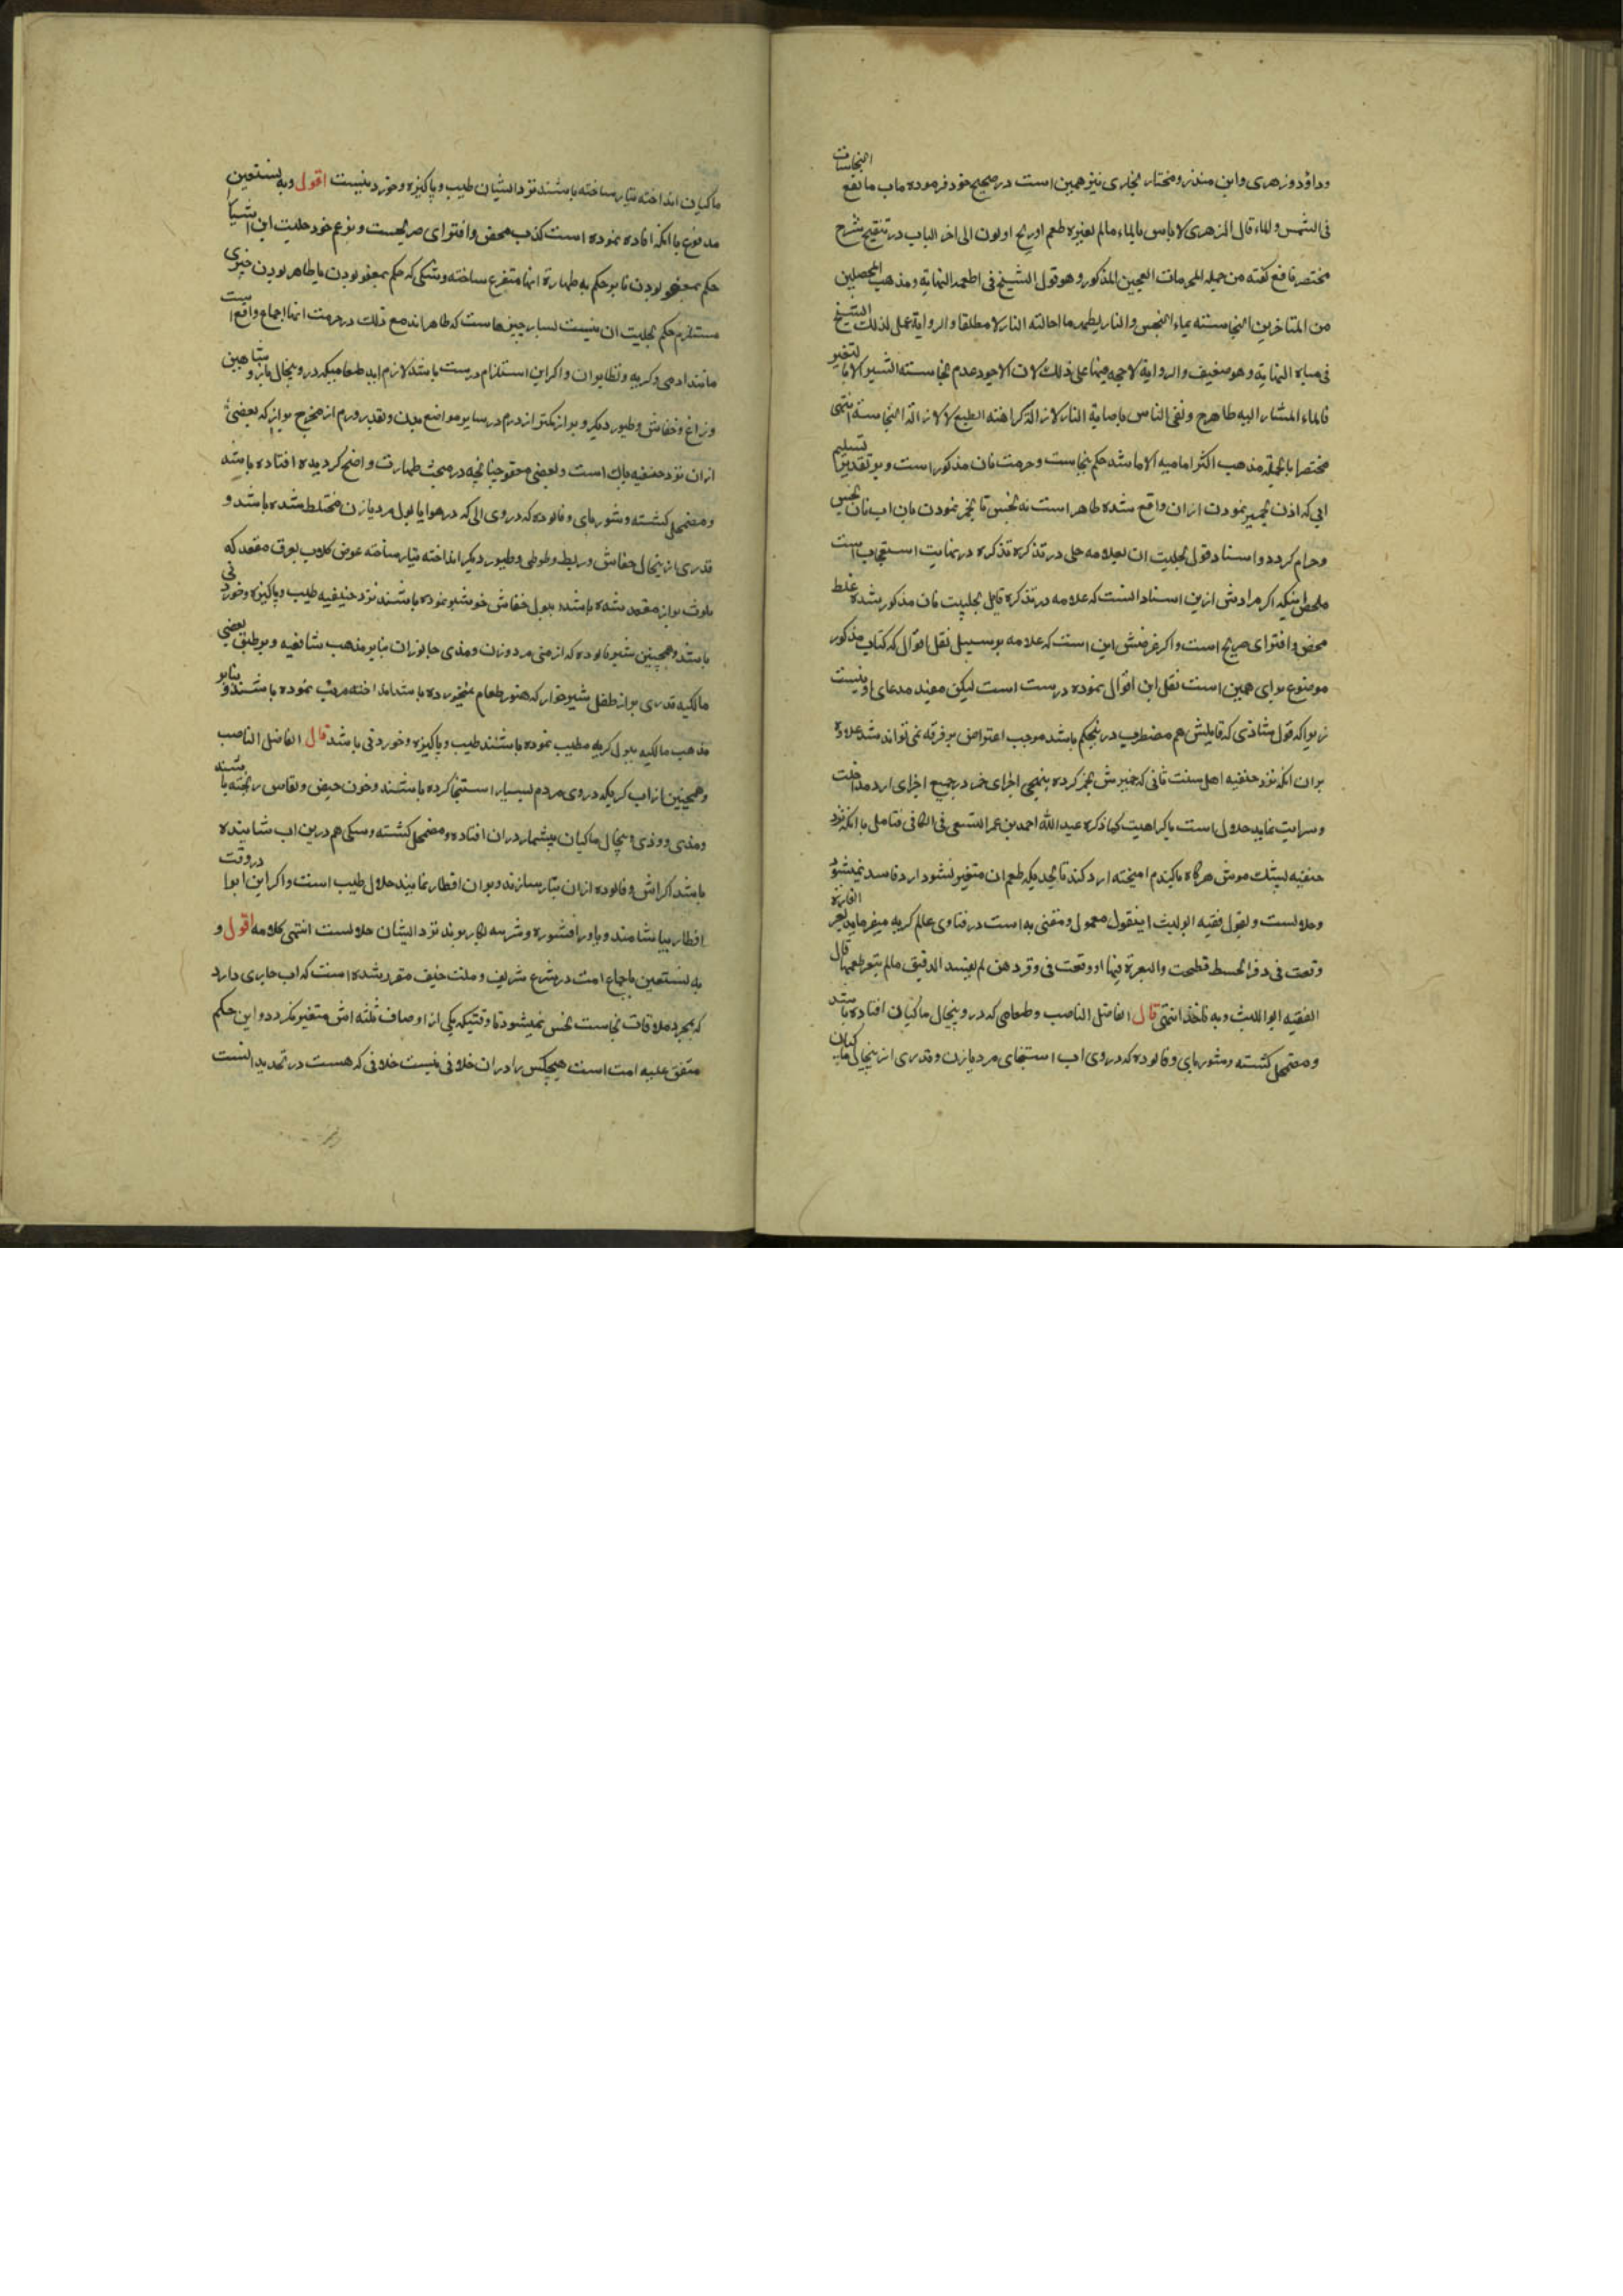 وداؤد وزهری وابن منذر ومختار بخاری نیز همین است در صحیح خود فرموده باب ما یقع النجاسات
فی السمن والماء قال الزهری لا باس بالماء ما لم یغیره طعم او ریح او لون الی اخر الباب در تنقیح شرح
مختصر نافع گفته من جمله المحرمات العجین المذکور وهو قول الشیخ فی اطعمه النهایة ومذهب المحصلین
من المتاخرین النجاسته بماء النجس والنار یطهر ما احالته النار لا مطلقا والروایة عمل لذلک الشیخ
فی میاه النهایة وهو ضعیف والروایة لا حجه فیها علی ذلک لان الاجود عدم نجاسته البئر الا بالتغیر
فالماء المشار الیه طاهر ونفی الباس باصابة النار لازالة کراهته الطبع لا لازالة النجاسته انتهی
مختصرا بالجمله مذهب اکثر امامیه الا ما شذ حکم بنجاست وحرمت نان مذکور است وبر تقدیر تسلیم
ابی که اذن بخمیر نمودن ازان واقع شده طاهر است نه نجس تا بخمیر نمودن بان اب نان نجس
وحرام گردد واسناد قول بحلیت ان بعلامه حلی در تذکره در نهایت استعجاب است
ملخص اینکه اگر مرادش ازین اسناد انست که علامه در تذکره قایل بحلیت نان مذکور شده غلط
محض وافترای صریح است واگر غرضش این است که علامه بر سبیل نقل اقوال که کتاب مذکور
موضوع برای همین است نقل این اقوال نموده درست است لیکن مفید مدعای او نیست
زیرا که قول شاذی که قایلش هم مضطرب درین حکم باشد موجب اعتراض بر فرقه نمی تواند شد علاوه
بران انکه نزد حنفیه اهل سنت نانی که خمیرش بخمر کرده بنهجی اجزای خمر در جمیع اجزای ارد مداخلت
وسرایت نماید حلال است با کراهیت کما ذکره عبد الله احمد بن عمر النسفی فی الکافی فتامل با انکه نزد
حنفیه پشک موش هرگاه باگندم امیخته ارد کنند تا بحدیکه طعم ان متغیر نشود ارد فاسد نمیشود
وحلالست وبقول فقیه ابو اللیث اینقول معمول ومفتی به است در فتاوی عالمگیریه میفرماید بعر الفارة
وقعت فی وقر الحنطه فطحنت والبعرة فیها او وقعت فی وقر دهن لم یفسد الدقیق ما لم یتغیر طعمها قال
الفقیه ابو اللیث وبه ناخذ انتهی قال الفاضل الناصب وطعامی که در و پنجال ماکیان افتاده باشد
ومضمحل گشته وشوربای وفالوده که در وی اب استنجای مرد یا زن وقدری از پنجال ماکیان
ماکیان انداخته تیار ساخته باشند نزد ایشان طیب وپاکیزه وخوردنیست اقول وبه نستعین
مدفوع با انکه افاده نموده است کذب محض وافترای صریحست وبزعم خود حلیت این اشیا
حکم بمعفو بودن یا بر حکم به طهارة انها متفرع ساخته وشکی که حکم بمعفو بودن یا طاهر بودن چیزی
مستلزم حکم بحلیت ان نیست بسا چیزهاست که طاهر اند مع ذلک در حرمت انها اجماع واقع است
مانند ادمی وگربه ونظایر ان واگر این استلزام درست باشد لازم اید طعامیکه در و پنجال باز وشاهین
وزاغ وخفاش وطیور دیگر وبراز کمتر از درم در سایر مواضع بدن وبقدر درم از مخرج براز که بعضی
ازان نزد حنفیه پاک است وبعضی معفو چنانچه در مبحث طهارت واضح گردیده افتاده باشد
ومضمحل گشته وشوربای وفالوده که در وی ابی که در هوا یا بول مرد یا زن مختلط شده باشد و
قدری از پنجال خفاش وبط وطوطی وطیور دیگر انداخته تیار ساخته عوض گلاب بعرق مقعد که
ملوث براز مقعد شده باشد وببول خفاش خوشبو نموده باشند نزد حنیفیه طیب وپاکیزه وخوردنی
باشد وهمچنین شیر فالوده که از منی مرد وزن ومذی جانوران بنابر مذهب شافعیه وبر طبق بعضی
مالکیه قدری براز طفل شیر خوار که هنوز طعام نخورده باشد انداخته مرتب نموده باشند وبنابر
مذهب مالکیه ببول گربه مطیب نموده باشند طیب وپاکیزه وخوردنی باشد قال الفاضل الناصب
وهمچنین از اب گر یکه در وی مردم بسیار استنجا کرده باشند وخون حیض ونفاس ریخته باشند
ومذی وودی وپنجال ماکیان بیشمار دران افتاده ومضمحل گشته وسگی هم درین اب شاییده
باشد اگر اش وفالوده ازان تیار سازند وبران افطار نمایند حلال طیب است واگر این ابرا در وقت
افطار بیاشامند وباورا افشوره وشربه بکار برند نزد ایشان حلالست انتهی کلامه اقول و
به نستعین باجماع امت در شرع شریف وملت حنیف مقرر شده است که اب جاری دارد
که بمجرد ملاقات نجاست نجس نمیشود تا وقتیکه یکی از اوصاف ثلثه اش متغیر نگردد واین حکم
متفق علیه امت است هیچکس را دران خلافی نیست خلافی که هست در تحدید انست